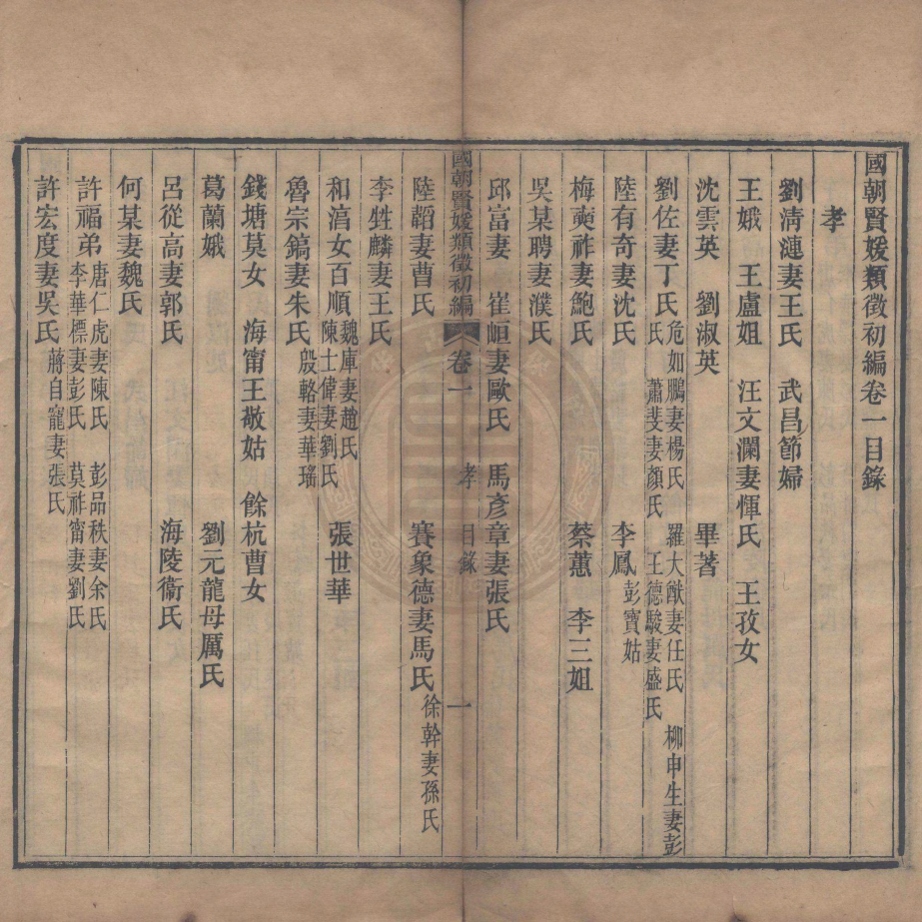 國朝賢媛類徵初編卷一目錄
孝
劉淸漣妻王氏 武昌節婦
王娥 王盧姐 汪文瀾妻惲氏 王孜女
沈雲英 劉淑英 畢著
劉佐妻丁氏 危如鵬妻楊氏 羅大猷妻任氏 柳申生妻彭氏 蕭斐妻顏氏 王德駿妻盛氏
陸有奇妻沈氏 李鳳 彭寶姑
梅奭祚妻鮑氏 蔡蕙 李三姐
吳某聘妻濮氏
邱富妻 崔㟭妻歐氏 馬彥章妻張氏
國朝賢媛類徵初編 卷一 孝 目錄 一
陸韜妻曹氏 賽象德妻馬氏 徐幹妻孫氏
李甡麟妻王氏
和淯女百順 魏庫妻趙氏 陳士偉妻劉氏 張世華
魯宗鎬妻朱氏 殷輅妻華瑤
錢塘莫女 海甯王敬姑 餘杭曹女
葛蘭娥 劉元龍母厲氏
呂從高妻郭氏 海陵衞氏
何某妻魏氏
許福弟 唐仁虎妻陳氏 彭品秩妻余氏 李華標妻彭氏 莫祚甯妻劉氏
許宏度妻吳氏 蔣自寵妻張氏